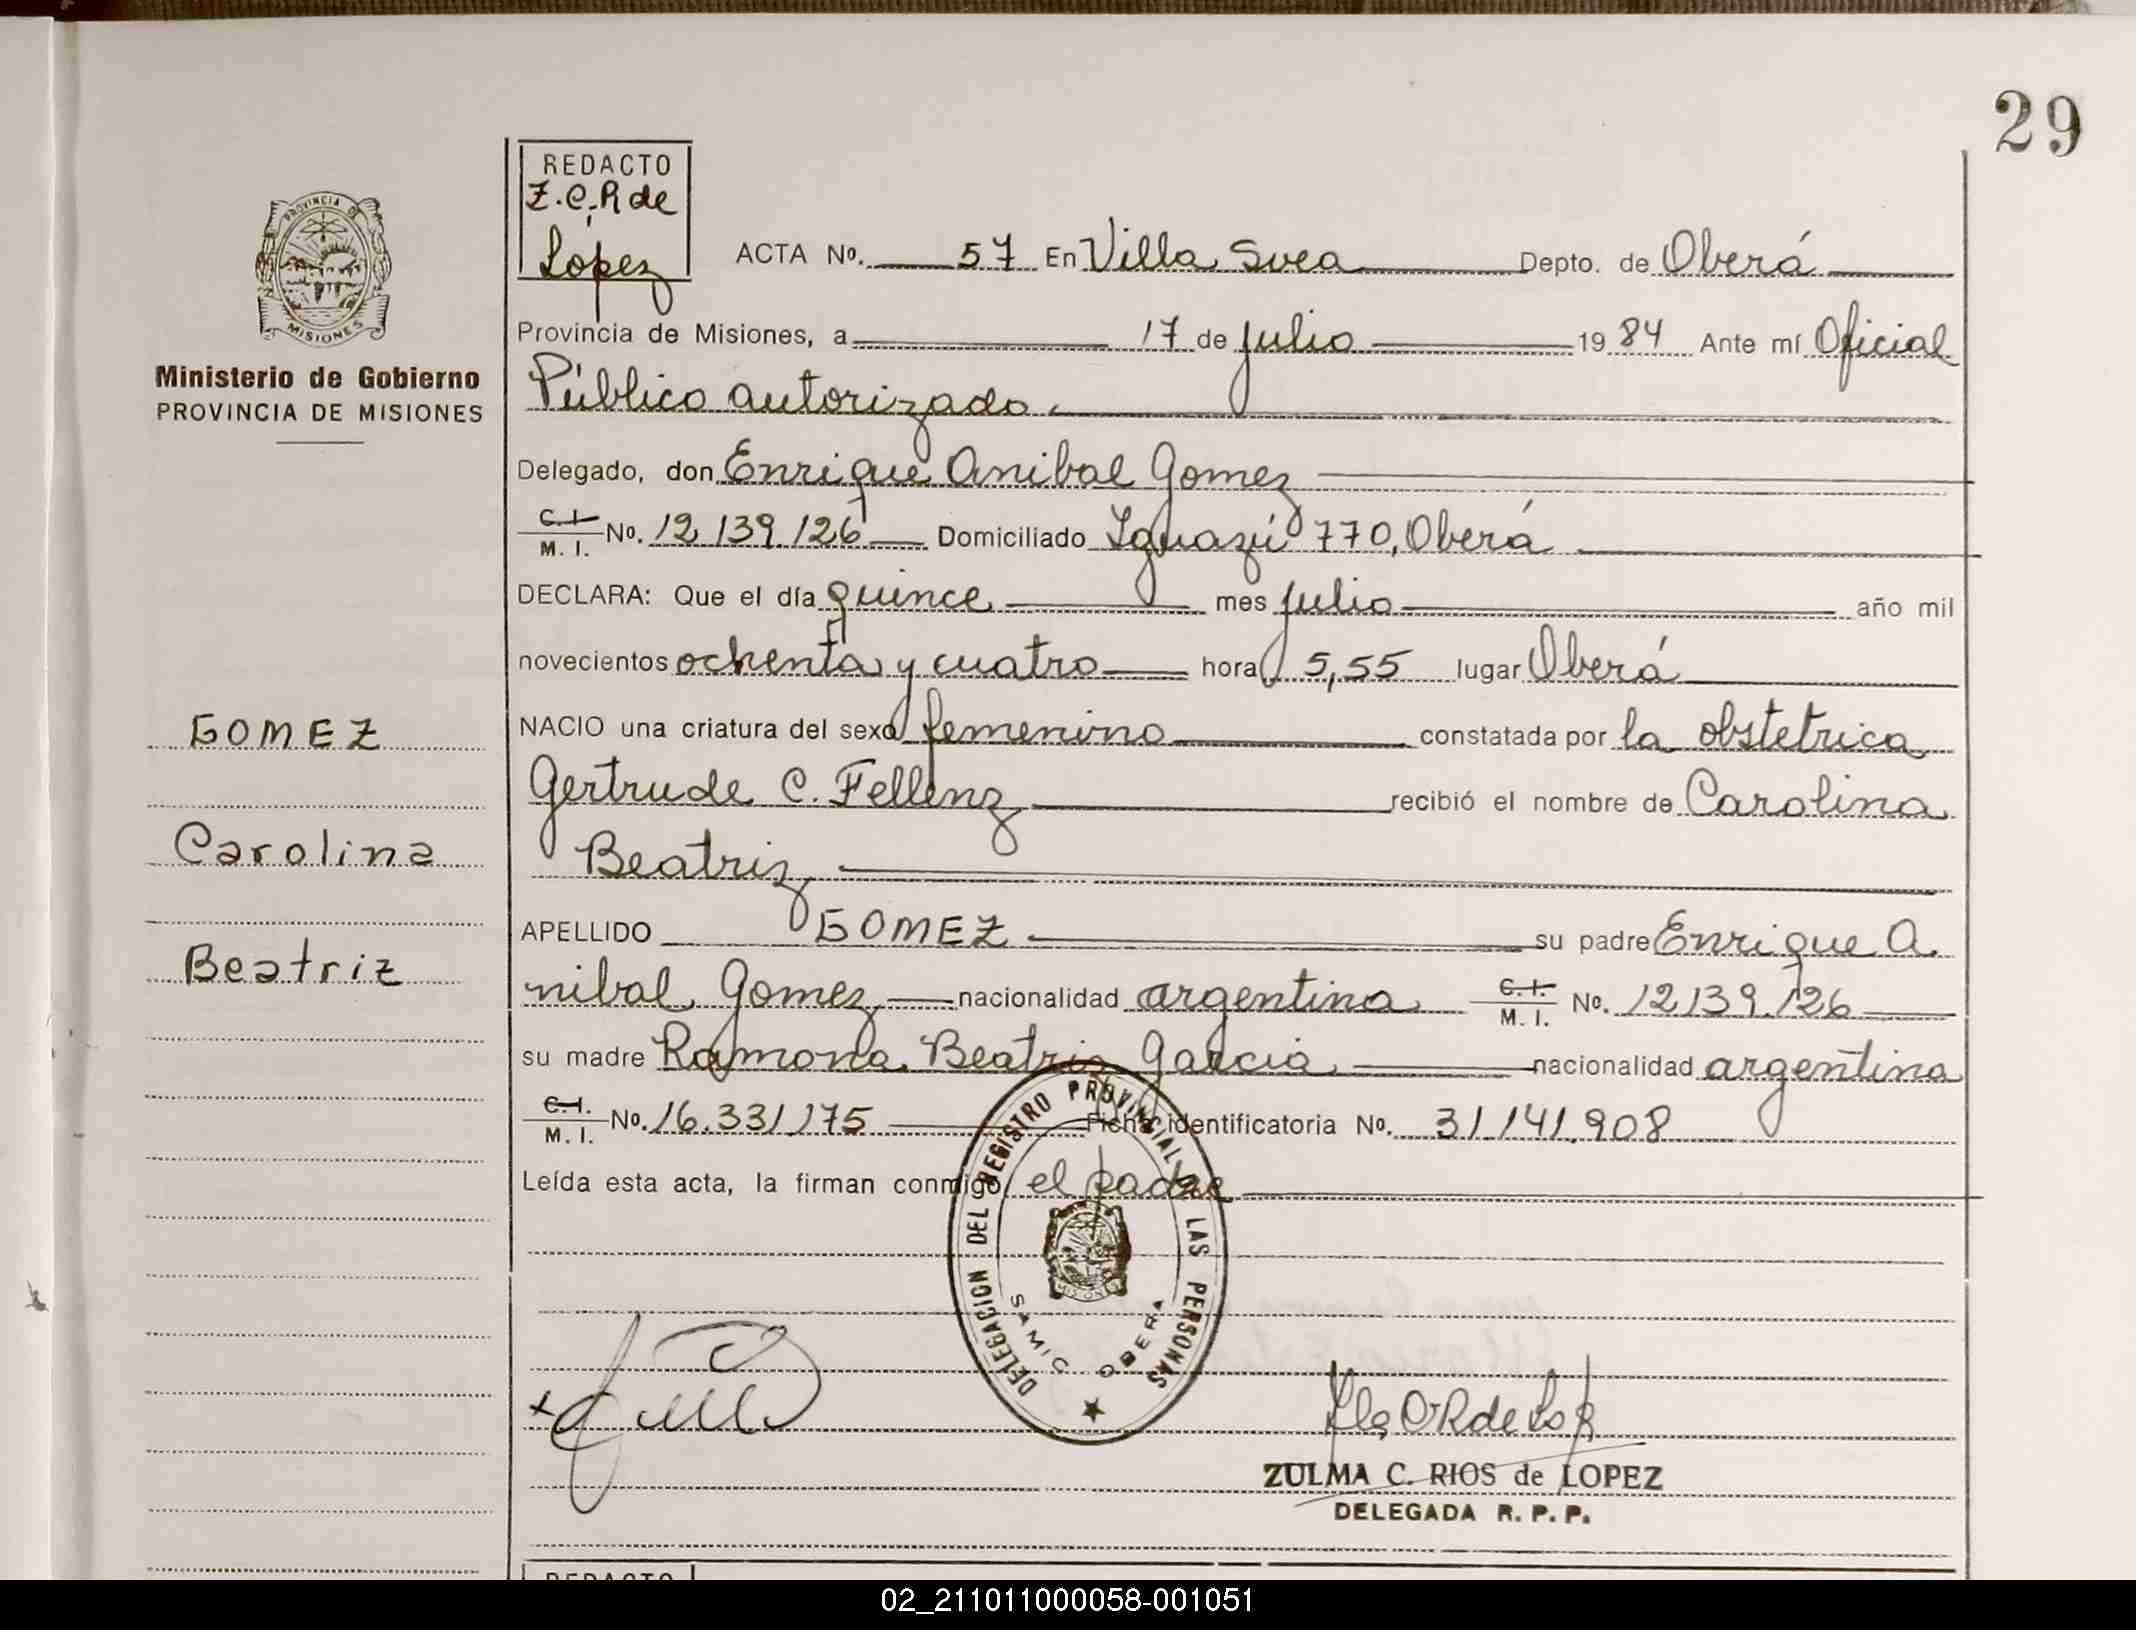 29
REDACTO
Z.C.R de
López
PROVINCIA DE
MISIONES
Ministerio de Gobierno
PROVINCIA DE MISIONES
ACTA Nº. 57 En Villa Svea Depto. de Oberá
Provincia de Misiones, a 17 de julio 1984 Ante mí Oficial
Público autorizado.
Delegado, don Enrique Anibal Gomez
C. I. M. I. Nº. 12.139.126 Domiciliado Iguazú 770, Oberá
DECLARA: Que el día quince mes julio año mil
novecientos ochenta y cuatro hora 5,55 lugar Oberá
NACIO una criatura del sexo femenino constatada por la obstetrica
Gertrude C. Fellenz recibió el nombre de Carolina
Beatriz
APELLIDO GOMEZ su padre Enrique A
nibal Gomez nacionalidad argentina C. I. M. I. Nº. 12.139.126
su madre Ramona Beatriz Garcia nacionalidad argentina
C. I. M. I. Nº. 16.331.175 Ficha identificatoria Nº. 31.141.908
Leída esta acta, la firman conmigo, el padre
GOMEZ
Carolina
Beatriz
DELEGACION DEL REGISTRO PROVINCIAL DE LAS PERSONAS
MISIONES
SAMIC OBERA
ZULMA C. RIOS de LOPEZ
DELEGADA R. P. P.
REDACTO
02_211011000058-001051